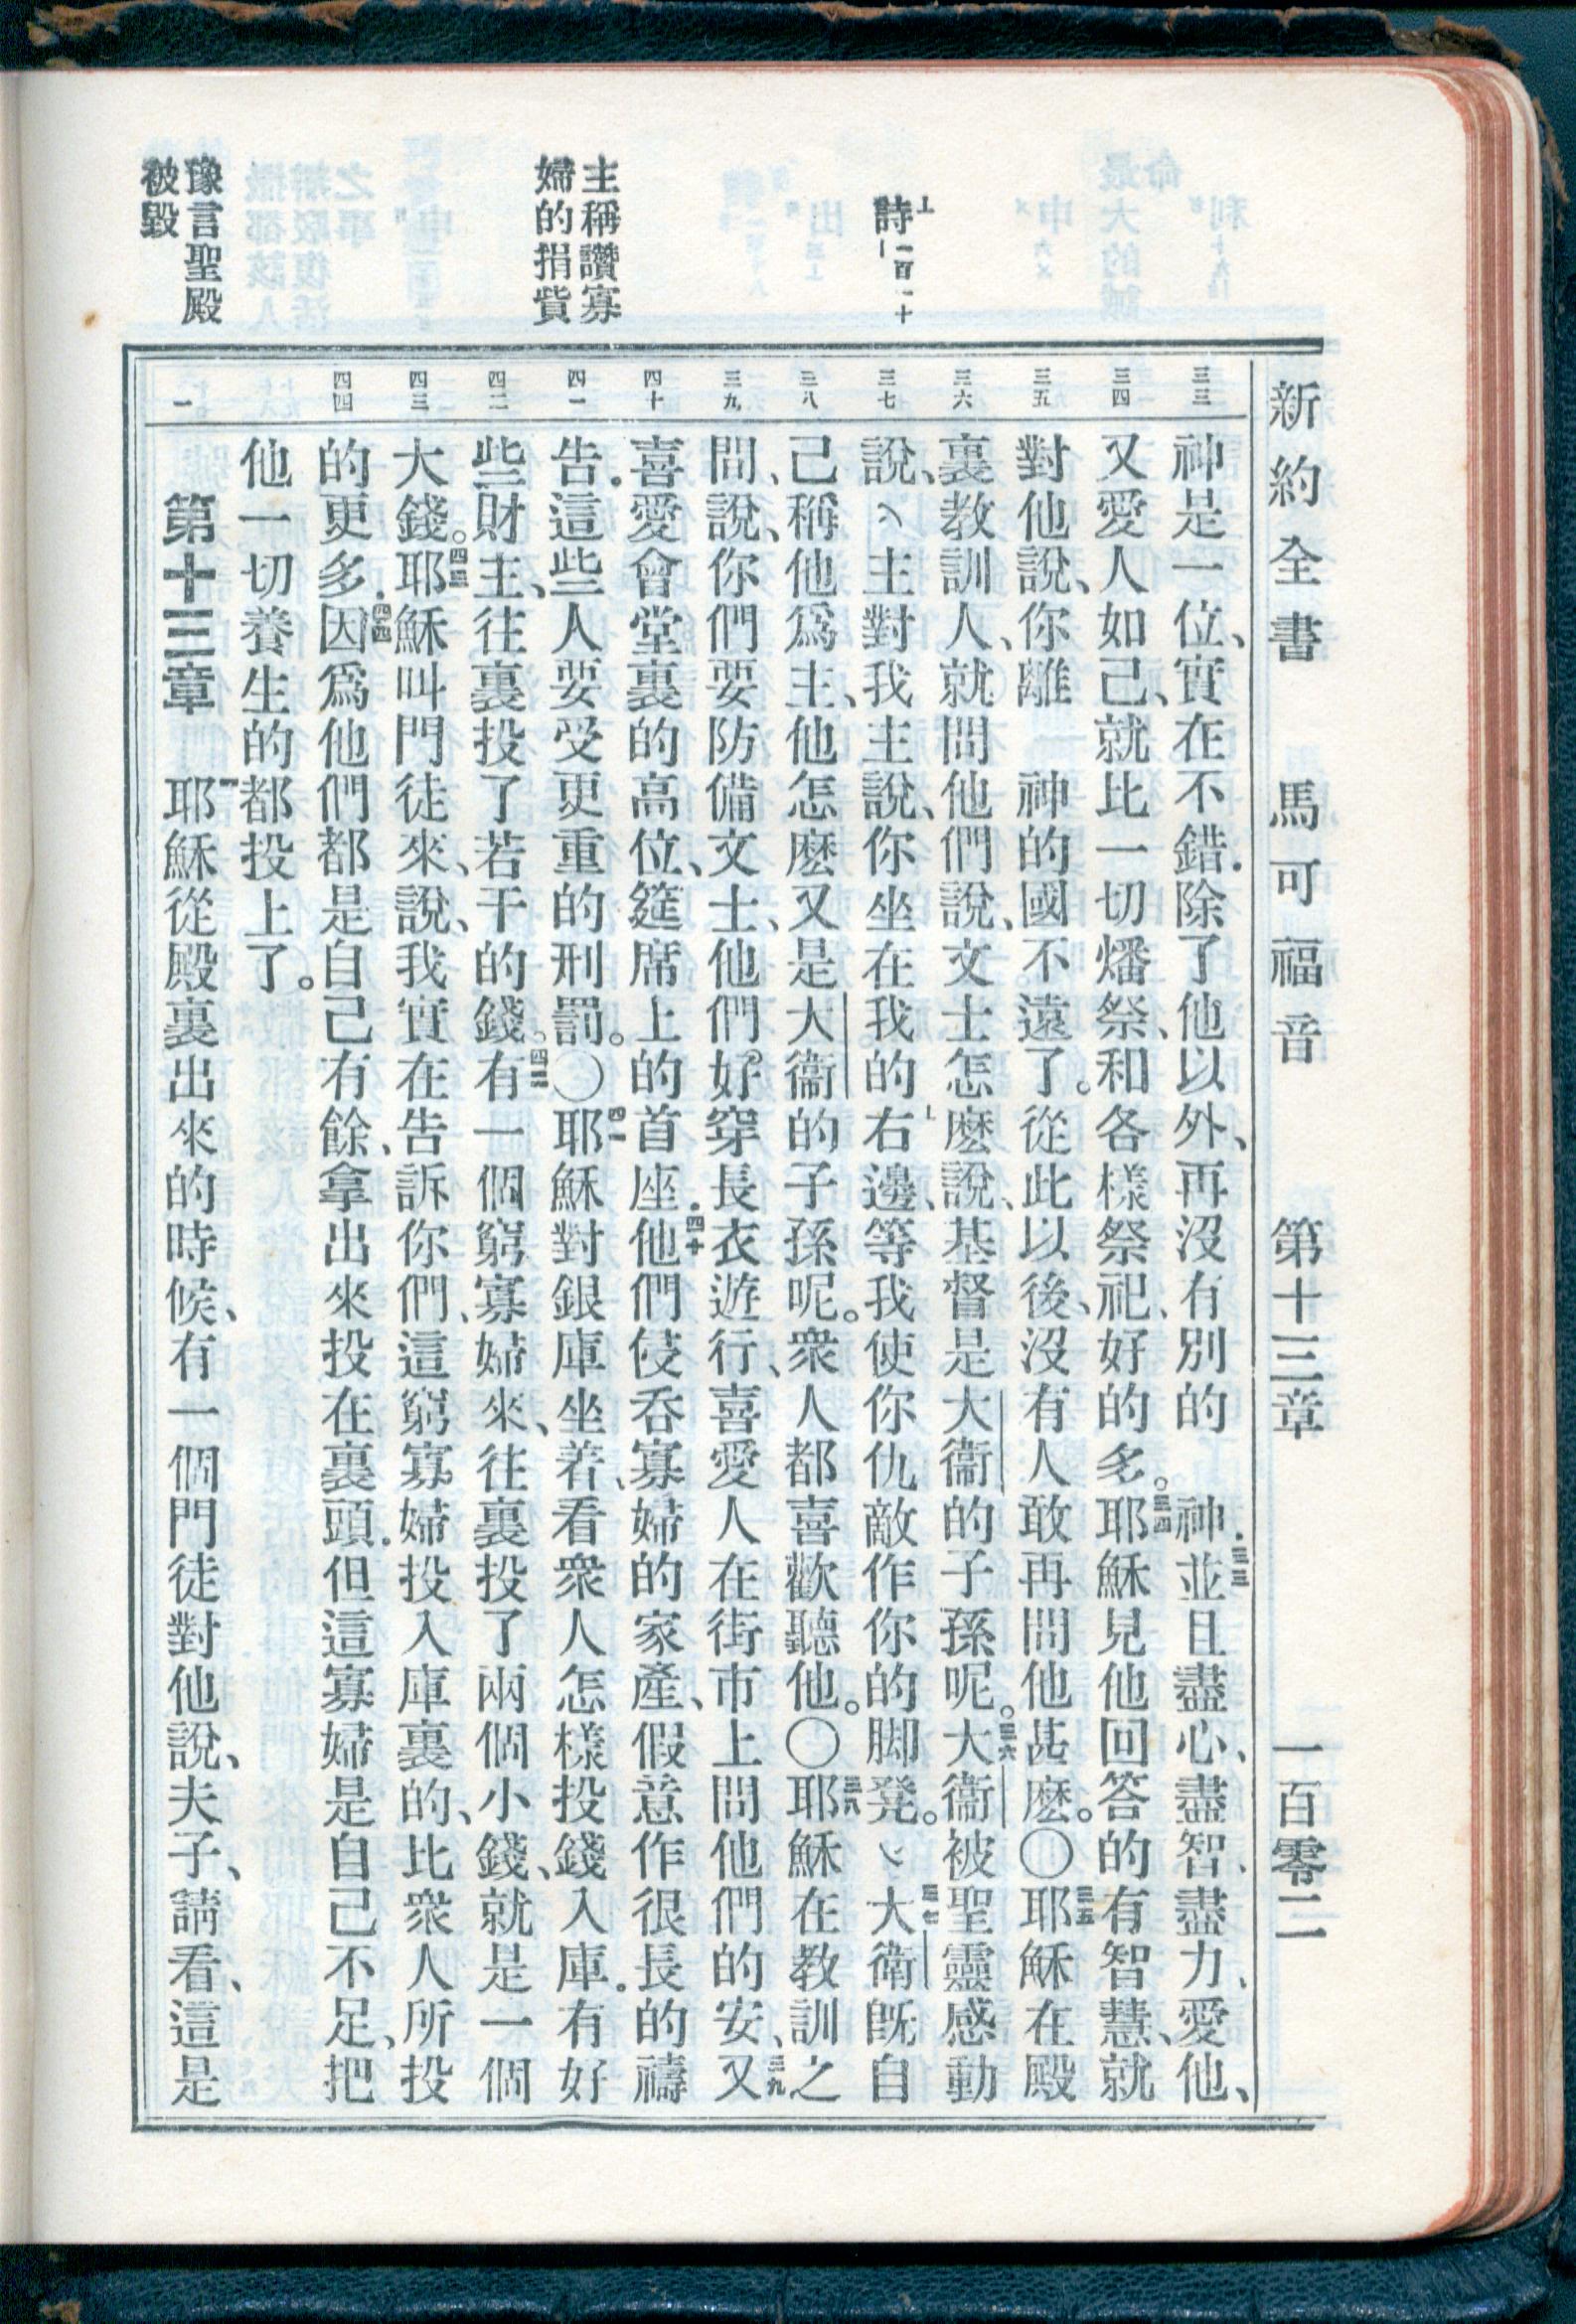 新約全書 馬可福音 第十三章 一百零二
三三 三四 三五 三六 三七 三八 三九 四十 四一 四二 四三 四四 一
詩一百一十
主稱讚寡
婦的捐貲
豫言聖殿
被毀
神是一位、實在不錯．除了他以外、再沒有別的 神．三三並且盡心、盡智、盡力、愛他、
又愛人如己、就比一切燔祭、和各樣祭祀、好的多。三四耶穌見他回答的有智慧、就
對他說、你離 神的國不遠了。從此以後、沒有人敢再問他甚麽。○三五耶穌在殿
裏教訓人、就問他們說、文士怎麽說、基督是大衞的子孫呢。三六大衞被聖靈感動
說、主對我主說、你坐在我的右邊、等我使你仇敵作你的脚凳。三七大衛旣自
己稱他爲主、他怎麽又是大衞的子孫呢。衆人都喜歡聽他。○三八耶穌在教訓之
間、說、你們要防備文士、他們好穿長衣遊行、喜愛人在街市上問他們的安、三九又
喜愛會堂裏的高位、筵席上的首座．四十他們侵吞寡婦的家產、假意作很長的禱
告．這些人要受更重的刑罰。○四一耶穌對銀庫坐着、看衆人怎樣投錢入庫．有好
些財主、往裏投了若干的錢。四二有一個窮寡婦來、往裏投了兩個小錢、就是一個
大錢。四三耶穌叫門徒來、說、我實在告訴你們、這窮寡婦投入庫裏的、比衆人所投
的更多．四四因爲他們都是自己有餘、拿出來投在裏頭．但這寡婦是自己不足、把
他一切養生的都投上了。
第十三章 一耶穌從殿裏出來的時候、有一個門徒對他說、夫子、請看、這是